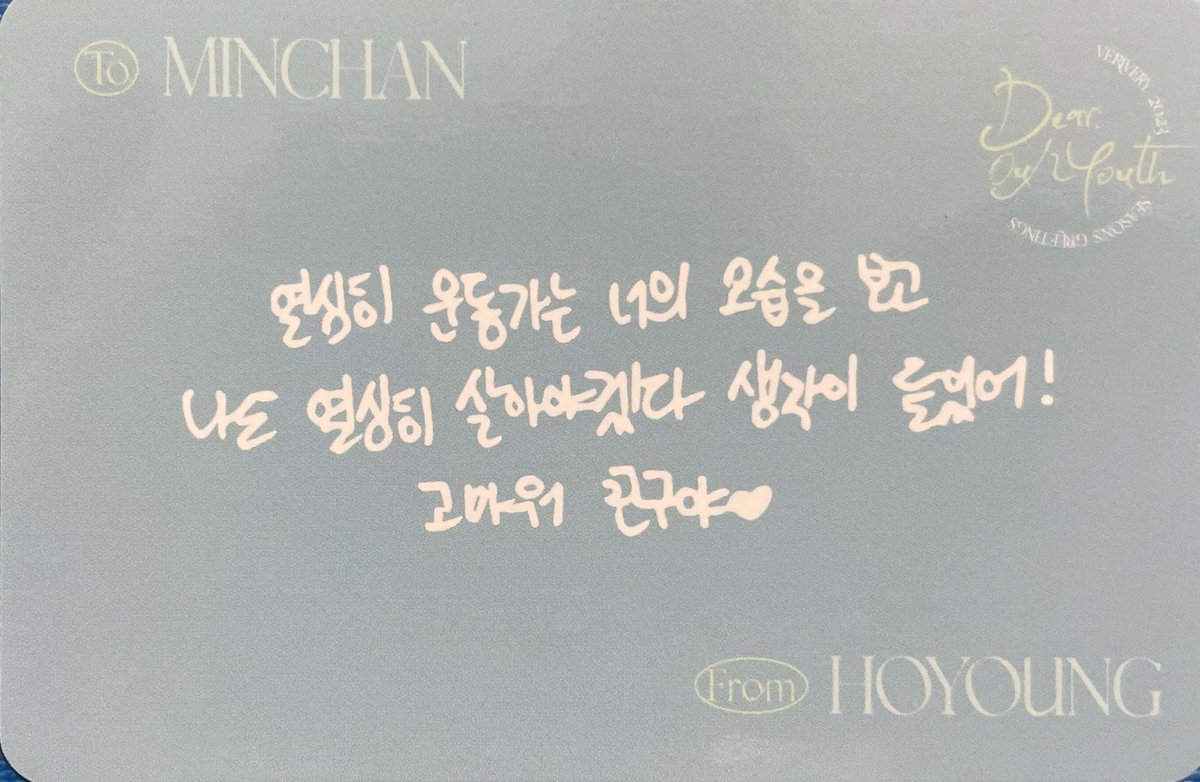 To MINCHAN
VERIVERY 2023
Dear.
Our Youth
SEASONS GREETINGS
열심히 운동가는 너의 모습을 보고
나도 열심히 살아야겠다 생각이 들었어!
고마워 친구야♥
From HOYOUNG